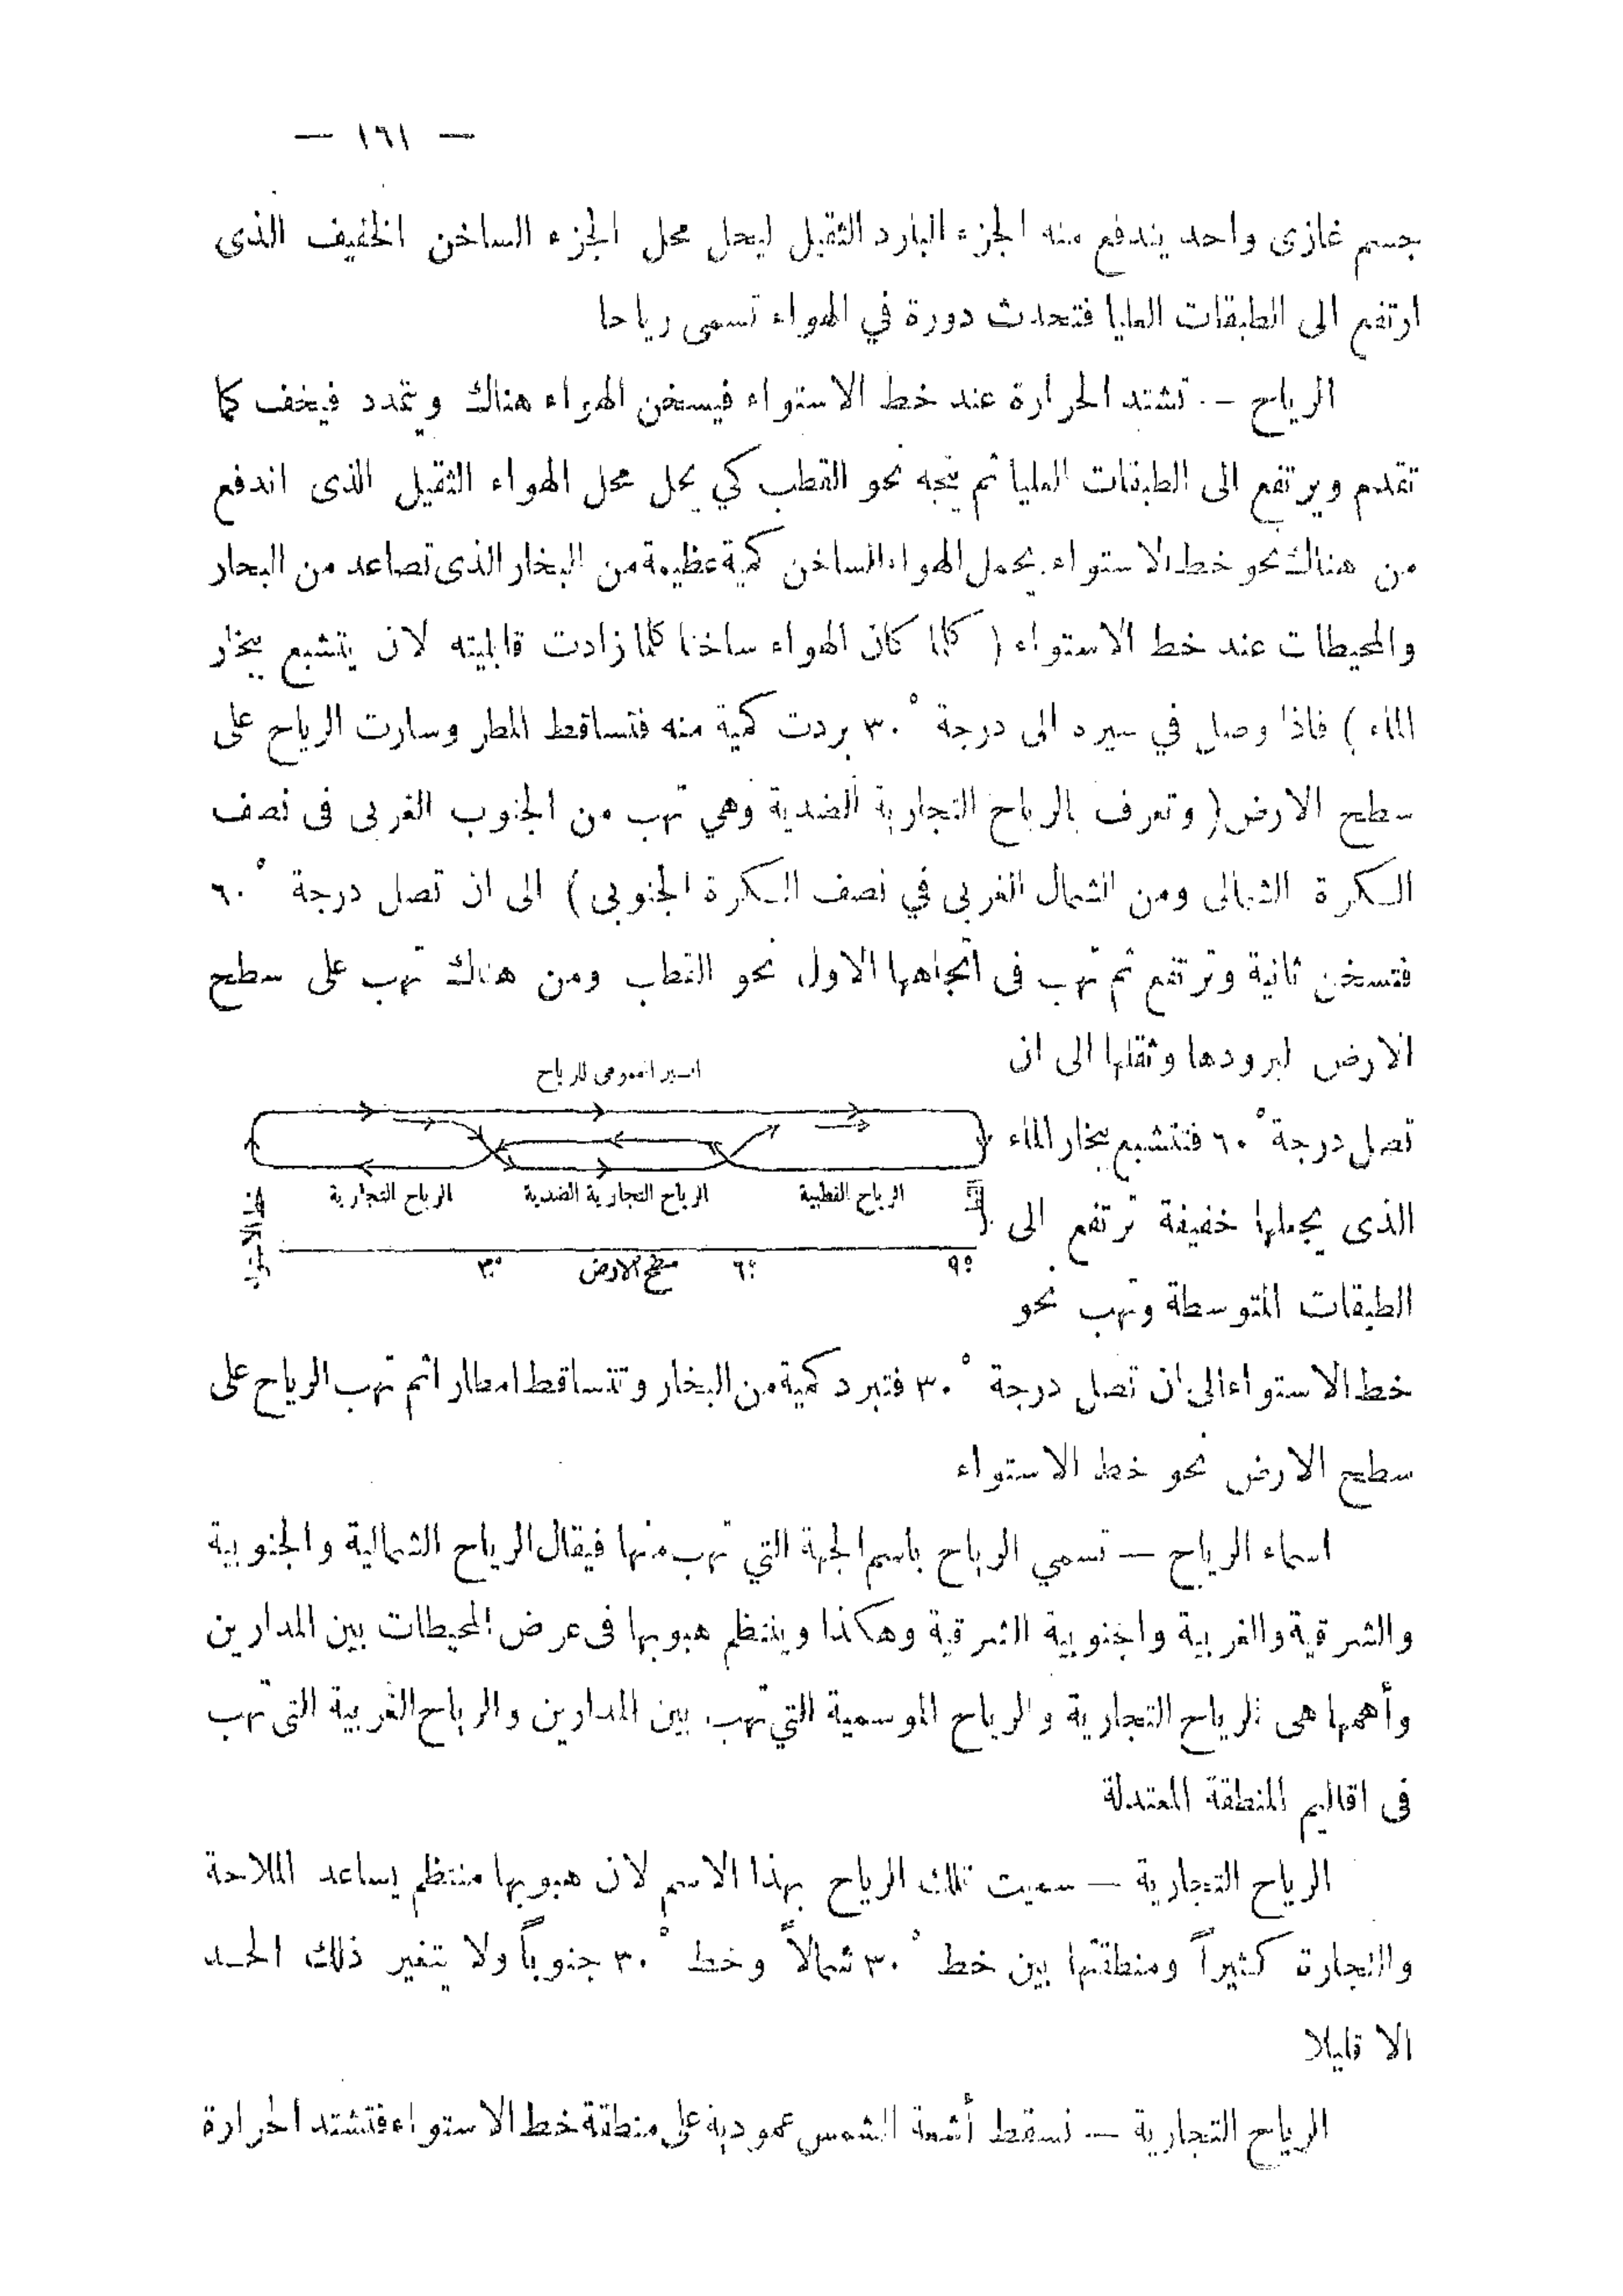 — ١٦١ —
جسم غازى واحد يندفع منه الجزء البارد الثقيل ليحل محل الجزء الساخن الخفيف الذى
ارتفع الى الطبقات العليا فتحدث دورة في الهواء تسمى رياحا
الرياح — تشتد الحرارة عند خط الاستواء فيسخن الهواء هناك ويتمدد فيخف كما
تقدم ويرتفع الى الطبقات العليا ثم يتجه نحو القطب كي يحل محل الهواء الثقيل الذى اندفع
من هناك نحو خط الاستواء. يحمل الهواء الساخن كمية عظيمة من البخار الذى تصاعد من البحار
والمحيطات عند خط الاستواء ( كلما كان الهواء ساخنا كلما زادت قابليته لان يتشبع ببخار
الماء ) فاذا وصل في سيره الى درجة ٣٠° بردت كمية منه فتساقط المطر وسارت الرياح على
سطح الارض ( وتعرف بالرياح التجارية الضدية وهي تهب من الجنوب الغربى فى نصف
الكرة الشمالى ومن الشمال الغربى في نصف الكرة الجنوبى ) الى ان تصل درجة ٦٠°
فتسخن ثانية وترتفع ثم تهب فى اتجاهها الاول نحو القطب ومن هناك تهب على سطح
الارض لبرودها وثقلها الى ان
تصل درجة ٦٠° فتتشبع ببخار الماء
الذى يجعلها خفيفة ترتفع الى
الطبقات المتوسطة وتهب نحو
السير العمومى للرياح
الرياح القطبية
الرياح التجارية الضدية
الرياح التجارية
القطب
خط الاستواء
٩٠°
٦٠°
سطح الارض
٣٠°
خط الاستواء الى ان تصل درجة ٣٠° فتبرد كمية من البخار وتتساقط امطارا ثم تهب الرياح على
سطح الارض نحو خط الاستواء
اسماء الرياح — تسمي الرياح باسم الجهة التي تهب منها فيقال الرياح الشمالية والجنوبية
والشرقية والغربية والجنوبية الشرقية وهكذا وينتظم هبوبها فى عرض المحيطات بين المدارين
وأهمها هى الرياح التجارية والرياح الموسمية التي تهب بين المدارين والرياح الغربية التى تهب
فى اقاليم المنطقة المعتدلة
الرياح التجارية — سميت تلك الرياح بهذا الاسم لان هبوبها منتظم يساعد الملاحة
والتجارة كثيراً ومنطقتها بين خط ٣٠° شمالاً وخط ٣٠° جنوباً ولا يتغير ذلك الحد
الا قليلا
الرياح التجارية — تسقط أشعة الشمس عمودية على منطقة خط الاستواء فتشتد الحرارة